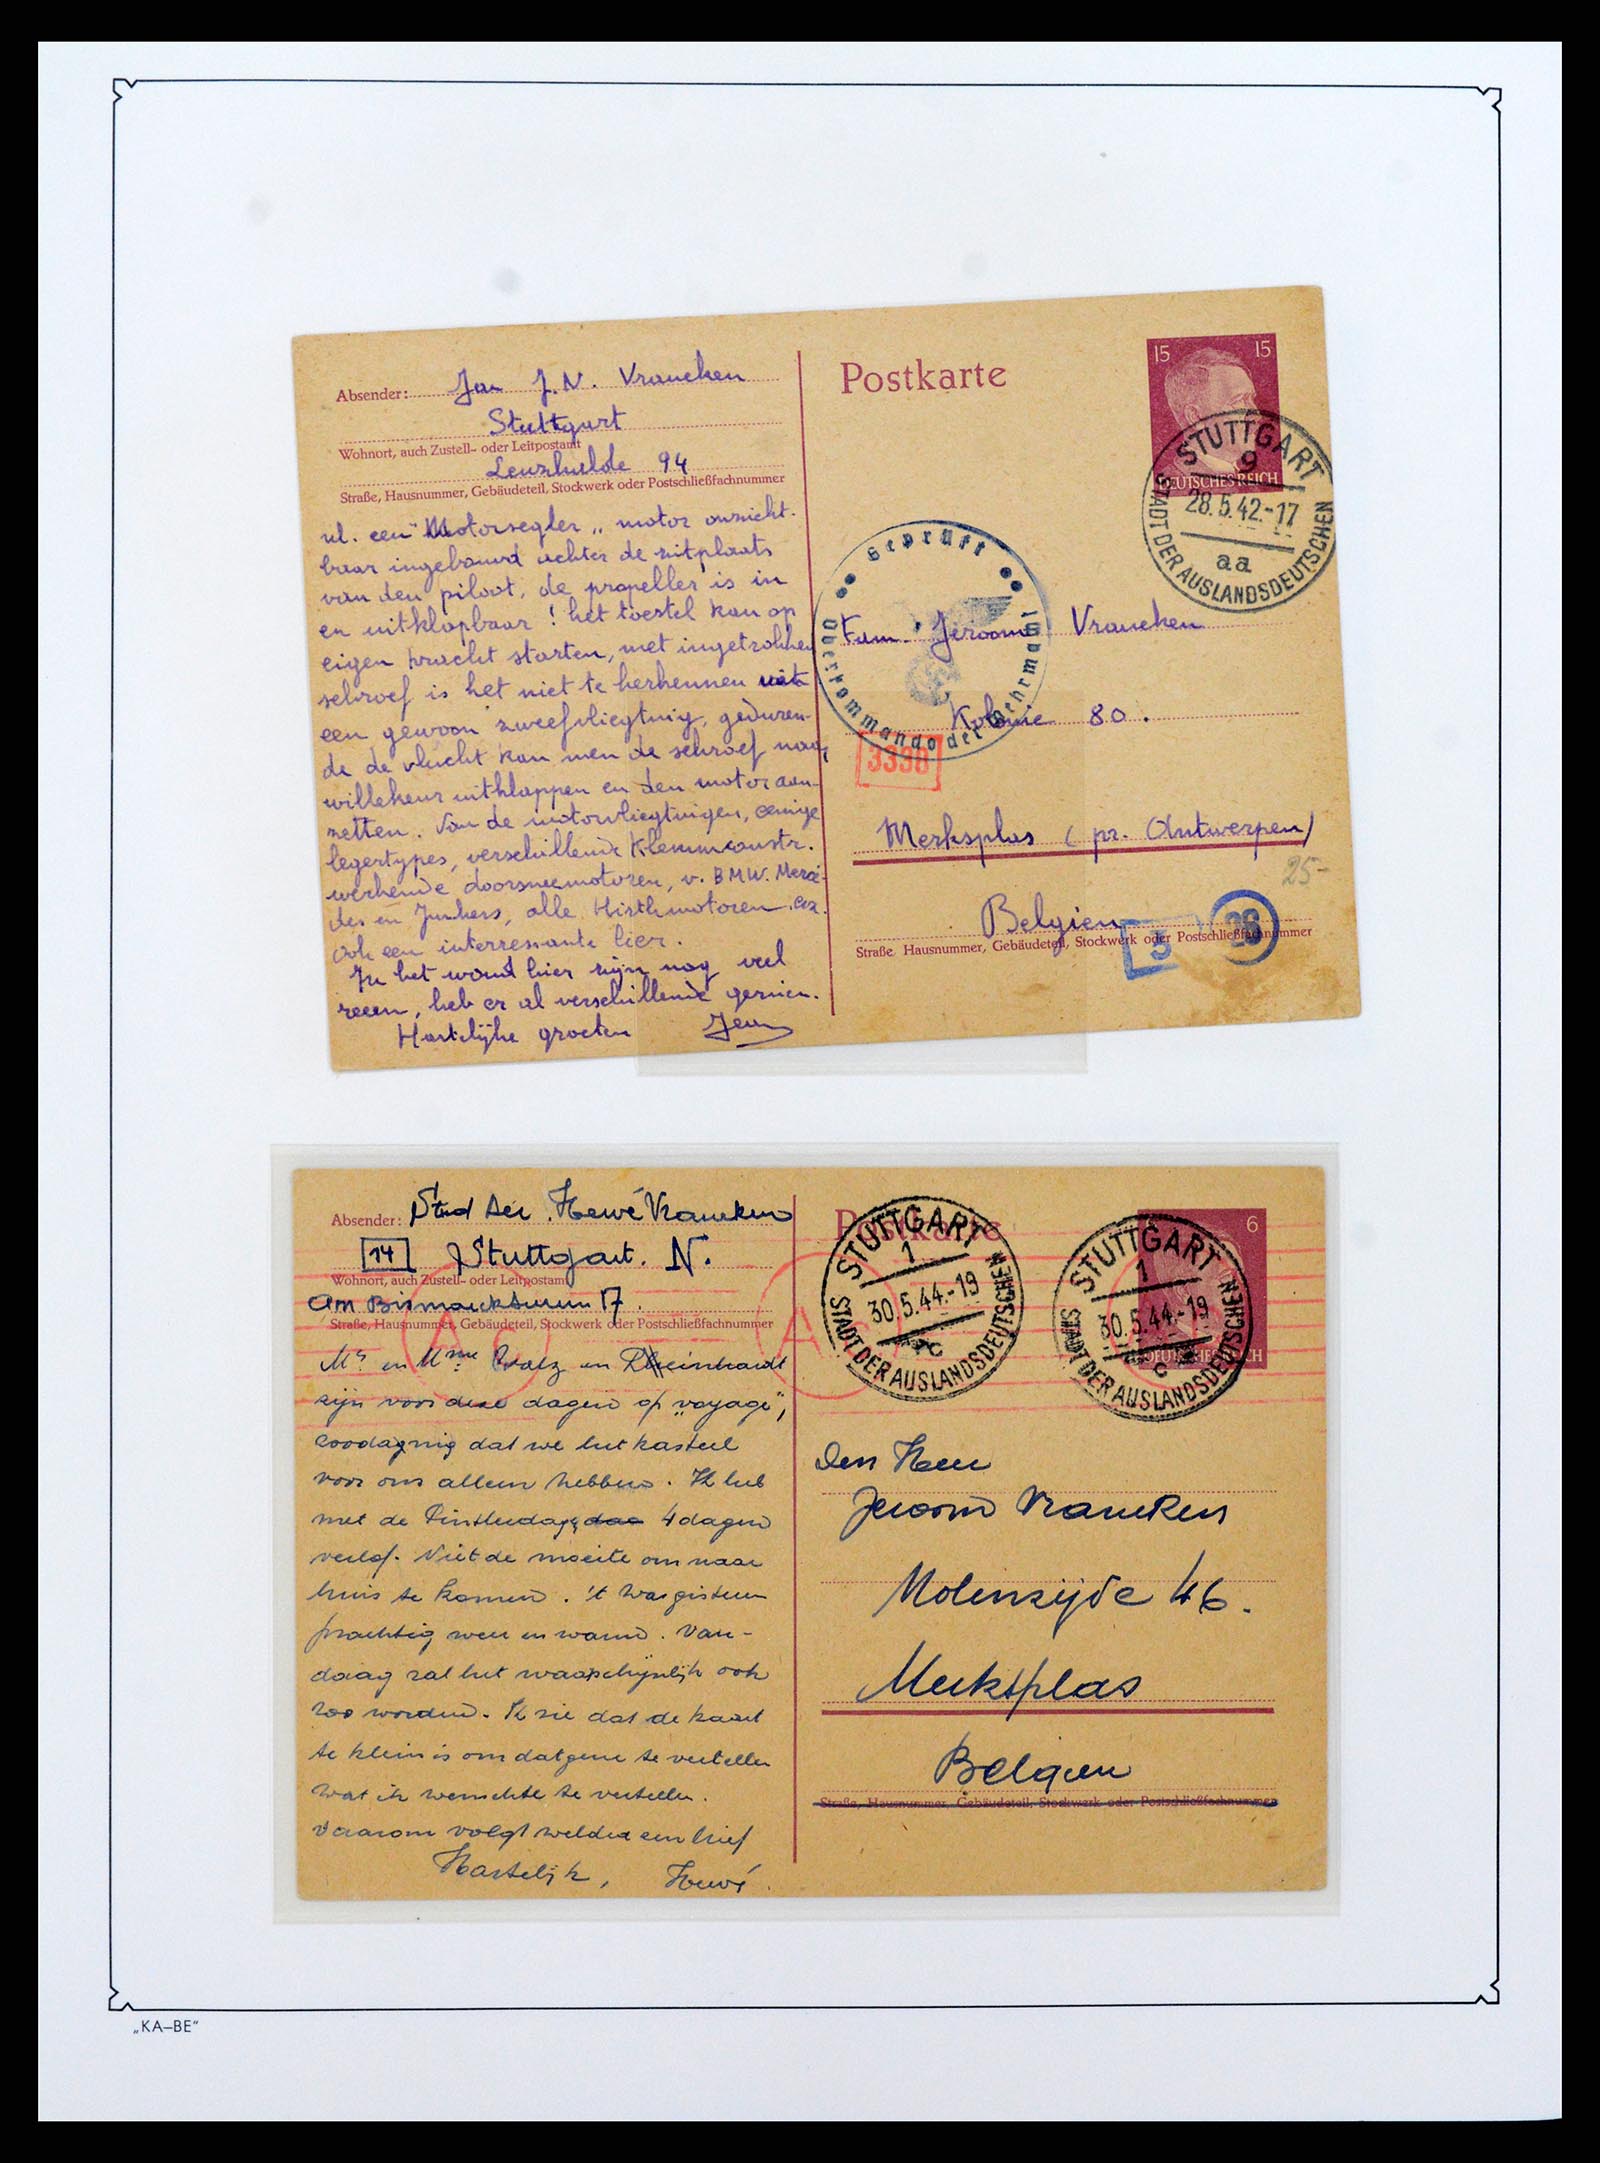 Absender: Jean J.N. Vrancken
Stuttgart
Wohnort, auch Zustell- oder Leitpostamt
Lenzhalde 94
Straße, Hausnummer, Gebäudeteil, Stockwerk oder Postschließfachnummer
nl. een "Motorsegler" motor onzicht-
baar ingebouwd achter de zitplaats
van den piloot, de propeller is in
en uitklapbaar! het toestel kan op
eigen kracht starten, met ingetrokken
schroef is het niet te herkennen uit
een gewoon zweefvliegtuig, geduren-
de de vlucht kan men de schroef naar
willekeur uitklappen en den motor aan-
zetten. Van de motorvliegtuigen, eenige
legertypes, verschillende Klemmconstr.
werkende doorsneemotoren, v. BMW. Merce-
des en Junkers, alle Hirthmotoren enz.
Ook een interressante hier.
In het woud hier zijn nog veel
reeen, heb er al verschillende gezien.
Hartelijke groeten Jean
Postkarte
15 15
DEUTSCHES REICH
STUTTGART
9
28.5.42.-17
aa
STADT DER AUSLANDSDEUTSCHEN
Geprüft
Oberkommando der Wehrmacht
Fam. Jeroom Vrancken
Kolonie 80.
3398
Merksplas (pr. Antwerpen)
25-
Belgien
Straße, Hausnummer, Gebäudeteil, Stockwerk oder Postschließfachnummer
5
28
Absender: Hervé Vrancken
14 Stuttgart. N.
Wohnort, auch Zustell- oder Leitpostamt
Am Bismarckturm 17.
Straße, Hausnummer, Gebäudeteil, Stockwerk oder Postschließfachnummer
Mr en Mme en Rheinhardt
zijn voor deze dagen op "voyage",
zoodanig dat we het kasteel
voor ons alleen hebben. Ik heb
met de Pinsterdagen 4 dagen
verlof. Niet de moeite om naar
huis te komen. 't Was gisteren
prachtig weer en warm. Van-
daag zal het waarschijnlijk ook
zoo worden. Ik zie dat de kaart
te klein is om datgene te vertellen
wat ik wenschte te vertellen.
Daarom volgt weldra een brief
Hartelijk, Hervé.
Postkarte
6
DEUTSCHES REICH
STUTTGART
1
30.5.44.-19
c
STADT DER AUSLANDSDEUTSCHEN
STUTTGART
1
30.5.44.-19
c
STADT DER AUSLANDSDEUTSCHEN
Den Heer
Jeroom Vrancken
Molenzijde 46.
Merksplas
Belgien
Straße, Hausnummer, Gebäudeteil, Stockwerk oder Postschließfachnummer
„KA–BE“